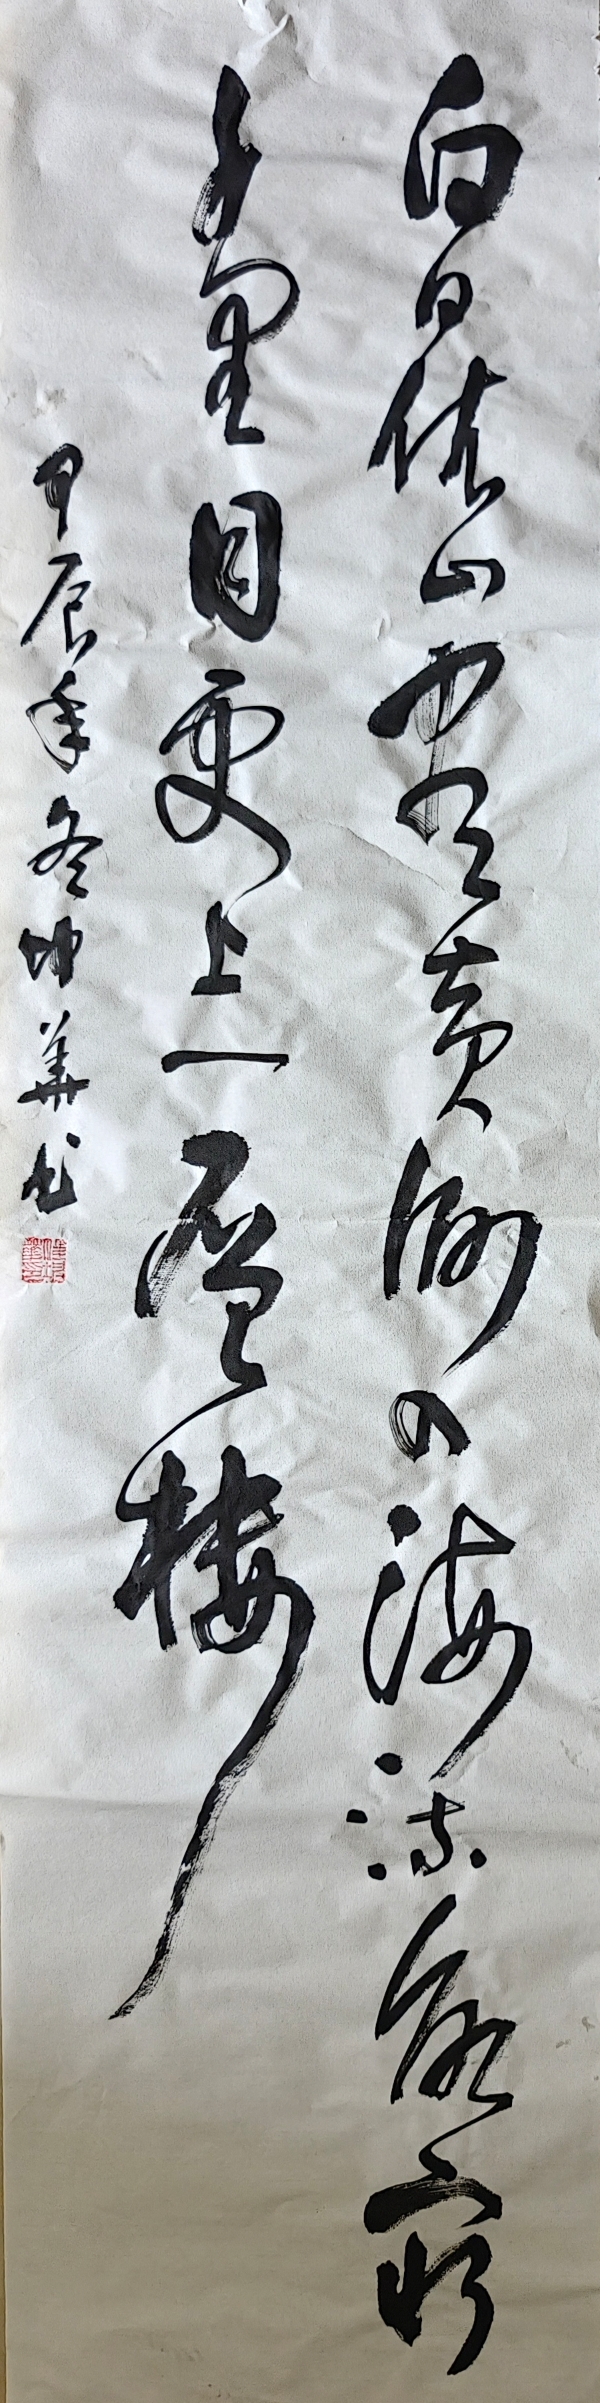 白日依山尽黄河入海流欲穷
千里目更上一层楼
甲辰年冬坤华书